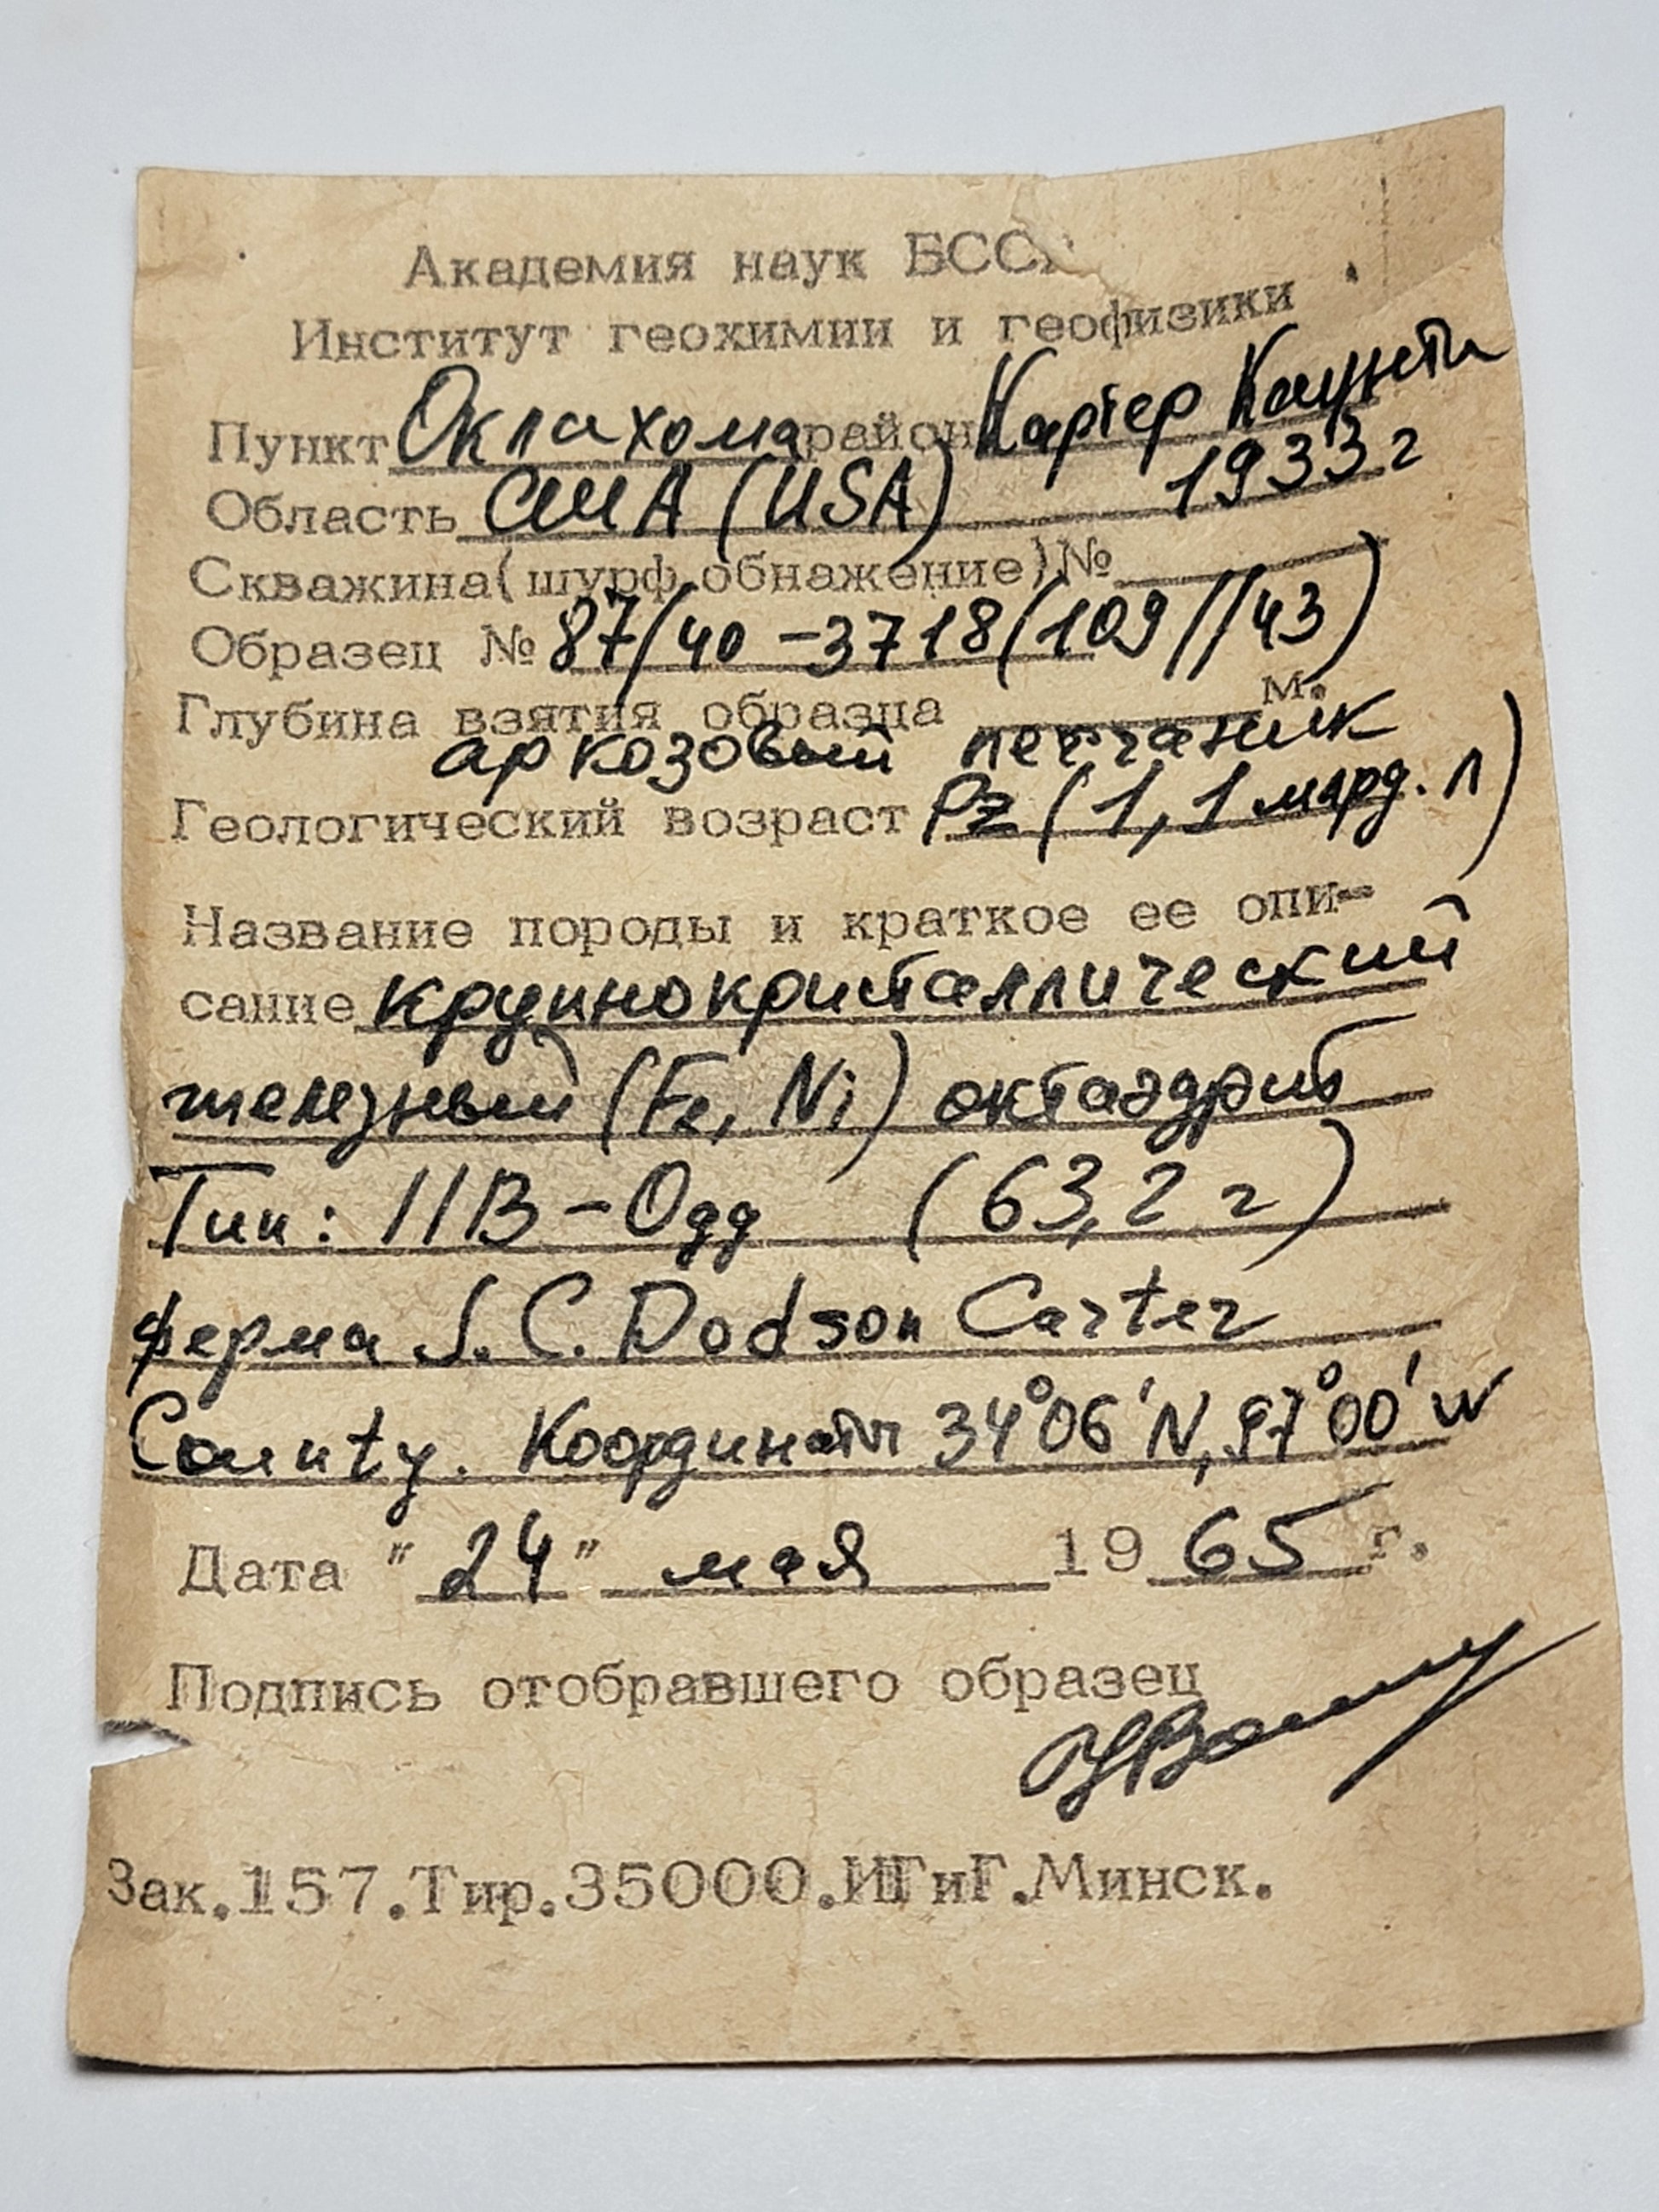 Академия наук БССР
Институт геохимии и геофизики
Пункт Оклахома район Картер Каунти
Область США (USA) 1933 г
Скважина(шурф,обнажение)№
Образец № 87/40 – 3718 (109//43)
Глубина взятия образца м.
аркозовый песчаник
Геологический возраст Pz (1,1 млрд. л)
Название породы и краткое ее опи-
сание крупнокристаллический
железный (Fe, Ni) октаэдрит
Тип: IIB – Oдд (63,2 г)
ферма S. C. Dodson Carter
County. Координаты 34°06'N, 97°00'W
Дата "24" мая 1965 г.
Подпись отобравшего образец
Зак.157.Тир.35000.ИГиГ.Минск.